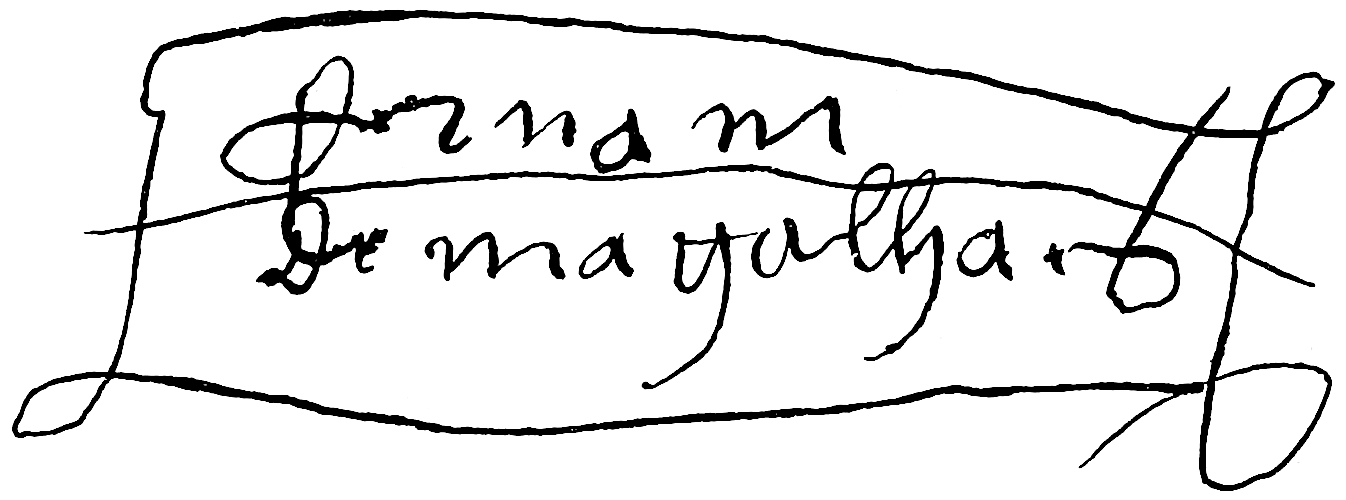 fernam
De magalhães